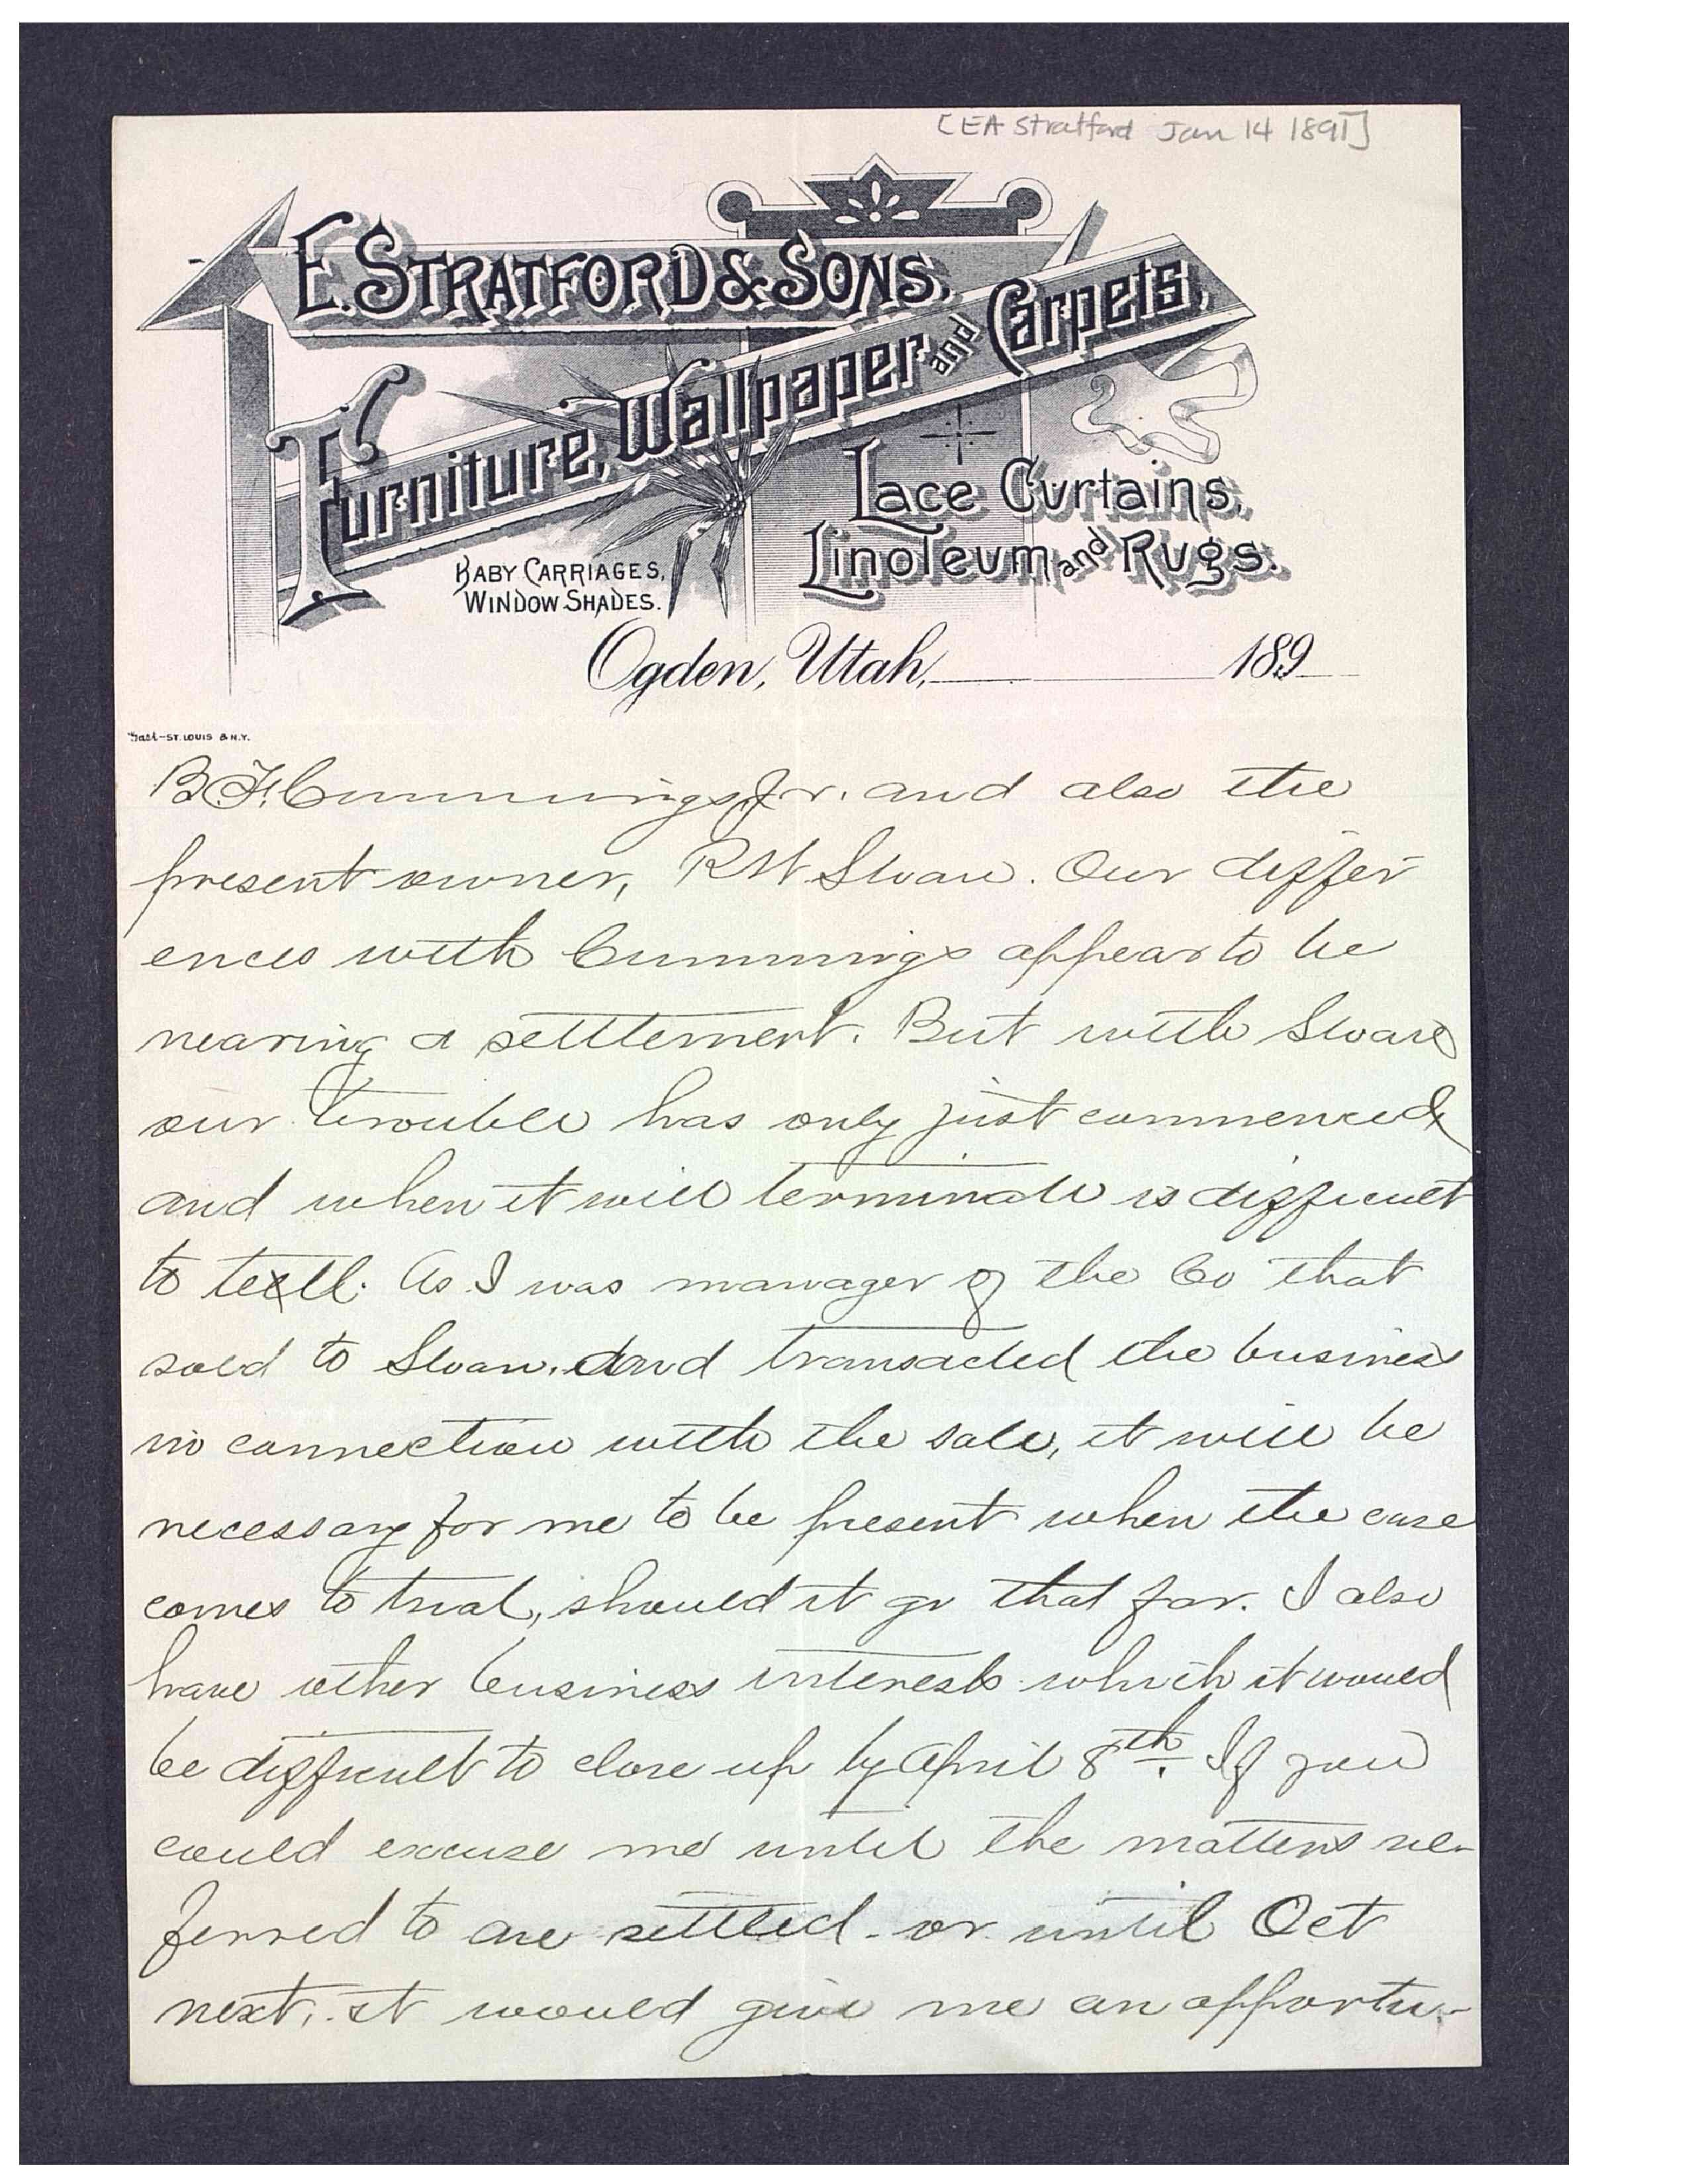 [EA Stratford Jan 14 1891]
E. STRATFORD & SONS.
Furniture, Wallpaper and Carpets,
Lace Curtains,
Linoleum and Rugs.
BABY CARRIAGES,
WINDOW SHADES.
Ogden, Utah, 189
Gast-ST. LOUIS & N.Y.
B F Cummings Jr. and also the
present owner, R W Sloan. Our differ
ences with Cummings appear to be
nearing a settlement. But with Sloan
our trouble has only just commenced
and when it will terminate is difficult
to tell. As I was manager of the Co that
sold to Sloan. and transacted the business
in connection with the sale, it will be
necessary for me to be present when the case
comes to trial, should it go that far. I also
have other business interests which it would
be difficult to close up by April 8th. If you
could excuse me until the matters re-
ferred to are settled - or until Oct
next, it would give me an opportu-